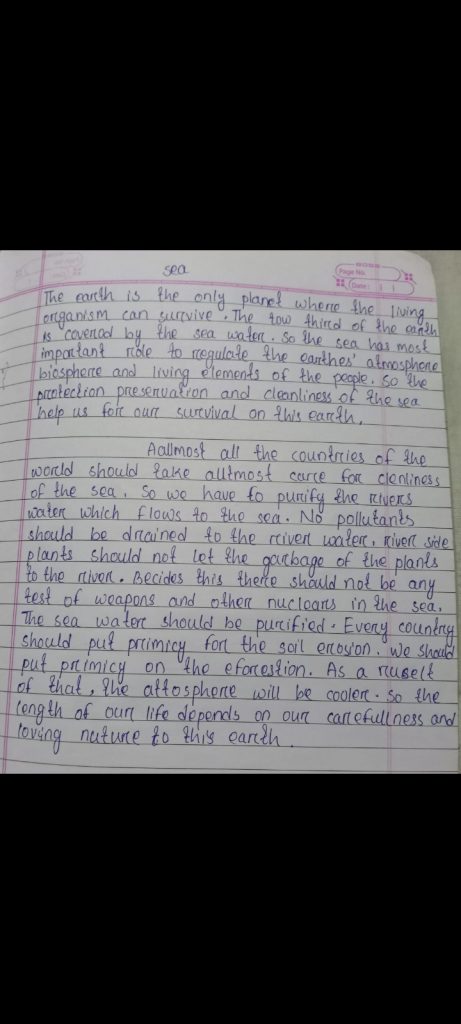 sea
Page No.
Date:
The earth is the only planet where the living
organism can survive. The tow third of the earth
is covered by the sea water. So the sea has most
important role to regulate the earthes' atmosphere
biosphere and living elements of the people. So the
protection preservation and cleanliness of the sea
help us for our survival on this earth.
Aallmost all the countries of the
world should take alltmost care for clenliness
of the sea. So we have to purify the rivers
water which flows to the sea. No pollutants
should be drained to the river water. River side
plants should not let the garbage of the plants
to the river. Becides this there should not be any
test of weapons and other nuclears in the sea.
The sea water should be purified. Every country
should put primicy for the soil erosion. We should
put primicy on the eforestion. As a ruselt
of that, the attosphere will be cooler. So the
length of our life depends on our carefullness and
loving nuture to this earth.